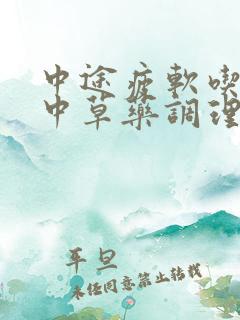 中途疲軟喫
中草藥調理
平旦
未经同意禁止转载